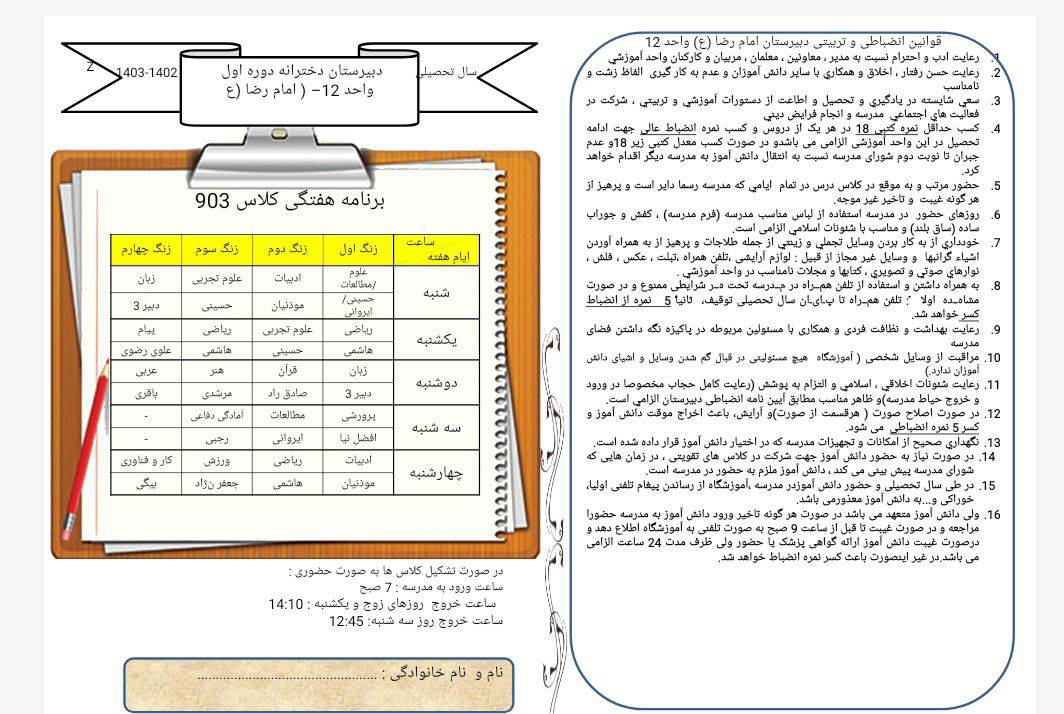 قوانین انضباطی و تربیتی دبیرستان امام رضا (ع) واحد 12
1. رعایت ادب و احترام نسبت به مدیر ، معاونین ، معلمان ، مربیان و کارکنان واحد آموزشی
2. رعایت حسن رفتار ، اخلاق و همکاري با سایر دانش آموزان و عدم به کار گیري الفاظ زشت و
نامناسب
3. سعي شایسته در یادگیري و تحصیل و اطاعت از دستورات آموزشي و تربیتي ، شرکت در
فعالیت هاي اجتماعي مدرسه و انجام فرایض دیني
4. کسب حداقل نمره کتبی 18 در هر یک از دروس و کسب نمره انضباط عالی جهت ادامه
تحصیل در این واحد آموزشی الزامی می باشدو در صورت کسب معدل کتبی زیر 18و عدم
جبران تا نوبت دوم شورای مدرسه نسبت به انتقال دانش آموز به مدرسه دیگر اقدام خواهد
کرد.
5. حضور مرتب و به موقع در کلاس درس در تمام ایامي که مدرسه رسما دایر است و پرهیز از
هر گونه غیبت و تاخیر غیر موجه.
6. روزهاي حضور در مدرسه استفاده از لباس مناسب مدرسه (فرم مدرسه) ، کفش و جوراب
ساده (ساق بلند) و مناسب با شئونات اسلامي الزامی است.
7. خودداري از به کار بردن وسایل تجملي و زینتي از جمله طلاجات و پرهیز از به همراه آوردن
اشیاء گرانبها و وسایل غیر مجاز از قبیل : لوازم آرایشی ،تلفن همراه ،تبلت ، عکس ، فلش ،
نوارهاي صوتي و تصویري ، کتابها و مجلات نامناسب در واحد آموزشي .
8. به همراه داشتن و استفاده از تلفن همـراه در مـدرسه تحت هـر شرایطی ممنوع و در صورت
مشاهـده اولا : تلفن همـراه تا پـایـان سال تحصیلی توقیف، ثانیاً 5 نمره از انضباط
کسر خواهد شد.
9. رعایت بهداشت و نظافت فردی و همکاری با مسئولین مربوطه در پاکیزه نگه داشتن فضای
مدرسه
10. مراقبت از وسایل شخصی ( آموزشگاه هیچ مسئولیتی در قبال گم شدن وسایل و اشیای دانش
آموزان ندارد.)
11. رعایت شئونات اخلاقي ، اسلامي و التزام به پوشش (رعایت کامل حجاب مخصوصا در ورود
و خروج حیاط مدرسه)و ظاهر مناسب مطابق آیین نامه انضباطی دبیرستان الزامی است.
12. در صورت اصلاح صورت ( هرقسمت از صورت)و آرایش، باعث اخراج موقت دانش آموز و
کسر 5 نمره انضباطي می شود.
13. نگهداري صحیح از امکانات و تجهیزات مدرسه که در اختیار دانش آموز قرار داده شده است.
14. در صورت نیاز به حضور دانش آموز جهت شرکت در کلاس های تقویتی ، در زمان هایی که
شورای مدرسه پیش بینی می کند ، دانش آموز ملزم به حضور در مدرسه است.
15. در طی سال تحصیلی و حضور دانش آموزدر مدرسه ،آموزشگاه از رساندن پیغام تلفنی اولیا،
خوراکی و...به دانش آموز معذورمی باشد.
16. ولي دانش آموز متعهد می باشد در صورت هر گونه تاخیر ورود دانش آموز به مدرسه حضورا
مراجعه و در صورت غیبت تا قبل از ساعت 9 صبح به صورت تلفنی به آموزشگاه اطلاع دهد و
درصورت غیبت دانش آموز ارائه گواهی پزشک یا حضور ولی ظرف مدت 24 ساعت الزامی
می باشد.در غیر اینصورت باعث کسر نمره انضباط خواهد شد.
سال تحصیلی 1402-1403 Z
دبیرستان دخترانه دوره اول
واحد 12– ( امام رضا (ع
برنامه هفتگی کلاس 903
ساعت
ایام هفته زنگ اول زنگ دوم زنگ سوم زنگ چهارم
شنبه علوم /مطالعات ادبیات علوم تجربی زبان
حسینی/ ایروانی موذنیان حسینی دبیر 3
یکشنبه ریاضی علوم تجربی ریاضی پیام
هاشمی حسینی هاشمی علوی رضوی
دوشنبه زبان قرآن هنر عربی
دبیر 3 صادق راد مرشدی باقری
سه شنبه پرورشی مطالعات آمادگی دفاعی -
افضل نیا ایروانی رجبی -
چهارشنبه ادبیات ریاضی ورزش کار و فناوری
موذنیان هاشمی جعفر نژاد بیگی
در صورت تشکیل کلاس ها به صورت حضوری :
ساعت ورود به مدرسه : 7 صبح
ساعت خروج روزهای زوج و یکشنبه : 14:10
ساعت خروج روز سه شنبه: 12:45
نام و نام خانوادگی : .................................................